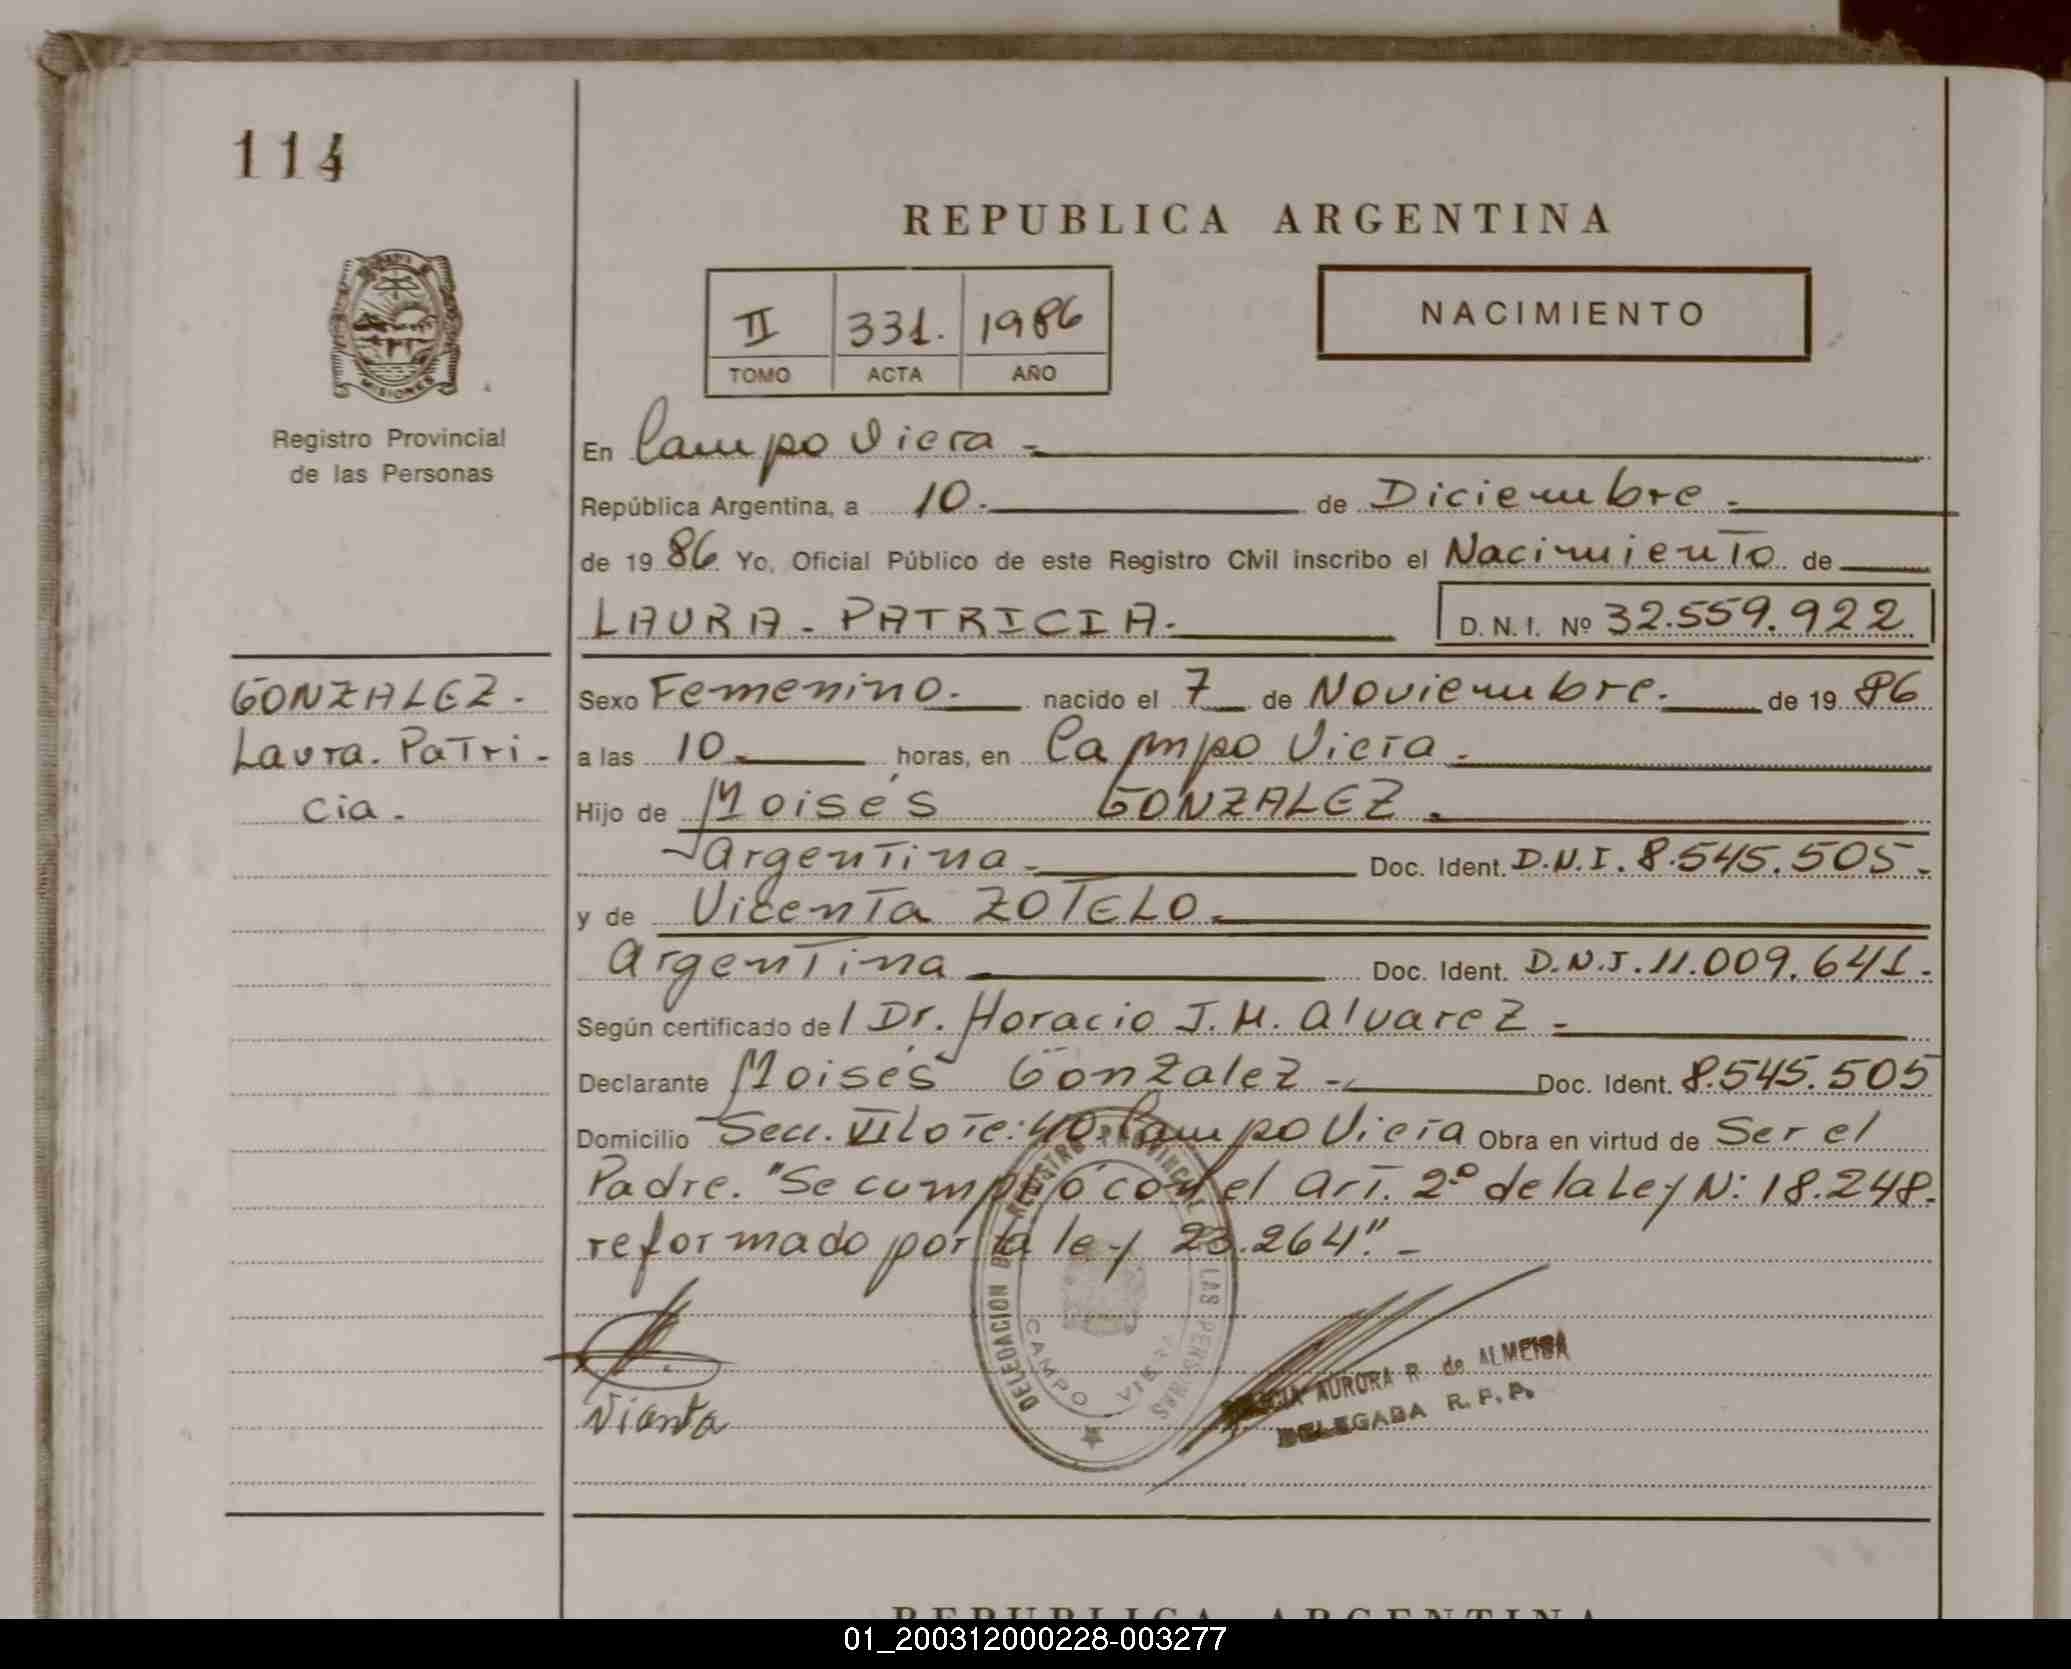 114
REPUBLICA ARGENTINA
II 331. 1986
TOMO ACTA AÑO
NACIMIENTO
MISIONES
Registro Provincial
de las Personas
En Campo Viera -
República Argentina, a 10. de Diciembre.
de 19 86. Yo, Oficial Público de este Registro Civil inscribo el Nacimiento de
LAURA - PATRICIA. D. N. I. Nº 32.559.922
GONZALEZ.
Laura. Patri-
cia.
Sexo Femenino. nacido el 7 de Noviembre. de 19 86
a las 10. horas, en Campo Viera.
Hijo de Moisés GONZALEZ.
Argentina Doc. Ident. D.N.I. 8.545.505-
y de Vicenta ZOTELO.
Argentina Doc. Ident. D.N.I. 11.009.641.
Según certificado de l Dr. Horacio J. M. Alvarez -
Declarante Moisés Gonzalez - Doc. Ident. 8.545.505
Domicilio Secc. VI Lote: 40. Campo Viera Obra en virtud de Ser el
Padre. "Se cumplió con el Art. 2º de la Ley N: 18.248.
reformado por la ley 23.264". -
DELEGACION DEL REGISTRO PROVINCIAL DE LAS PERSONAS
CAMPO VIERA
AURORA R. de ALMEIDA
DELEGADA R. P. P.
REPUBLICA ARGENTINA
01_200312000228-003277